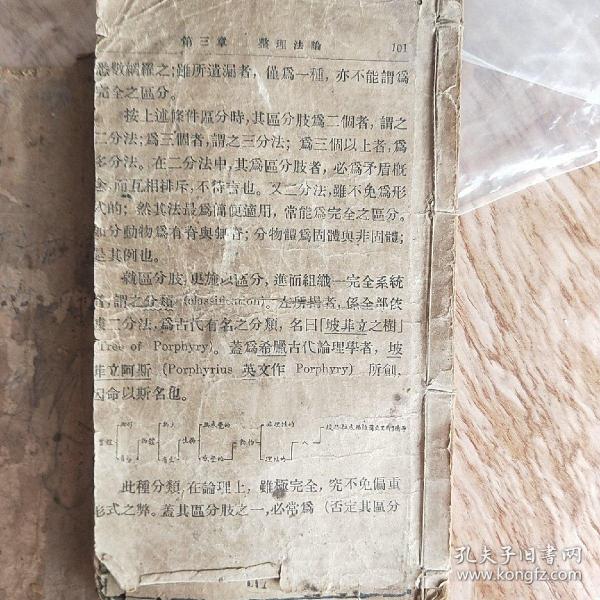 第三章 整理法論 101
悉數網羅之;雖所遺漏者,僅爲一種,亦不能謂爲
完全之區分。
按上述條件區分時,其區分肢爲二個者,謂之
二分法;爲三個者,謂之三分法;爲三個以上者,爲
多分法。在二分法中,其爲區分肢者,必爲矛盾概
念,而互相排斥,不待言也。又二分法,雖不免爲形
式的;然其法最爲簡便適用,常能爲完全之區分。
如分動物爲有脊與無脊;分物體爲固體與非固體;
是其例也。
就區分肢,更施以區分,進而組織一完全系統
者,謂之分類(classification)左所揭者,係全部依
據二分法,爲古代有名之分類,名曰「坡菲立之樹」
(Tree of Porphyry)。蓋爲希臘古代論理學者,坡
菲立阿斯(Porphyrius 英文作 Porphyry)所創,
因命以斯名也。
物體
生物
動物
理性的
人
此種分類,在論理上,雖極完全,究不免偏重
形式之弊。蓋其區分肢之一,必常爲(否定其區分
孔夫子旧书网
www.kongfz.com